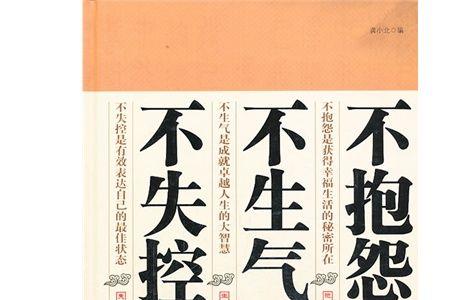 龚小北◎编
不抱怨
不抱怨是获得幸福生活的秘密所在
不生气
不生气是成就卓越人生的大智慧
不失控
不失控是有效表达自己的最佳状态